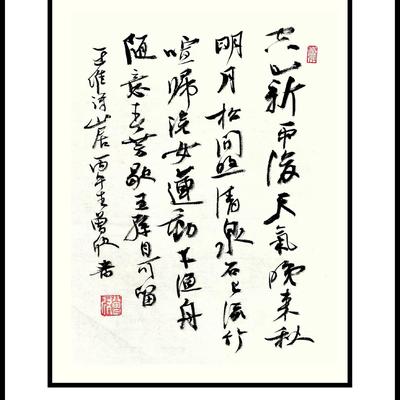 空山新雨後天氣晚来秋
明月松間照清泉石上流竹
喧歸浣女蓮動下漁舟
隨意春芳歇王孫自可留
王維詩山居丙午春曾書